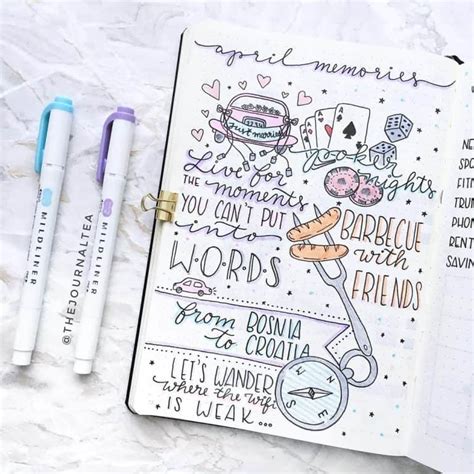 april memories
Just married
poker
nights
Live for
THE moments
YOU CAN'T PUT
into
WORDS
BARBECUE
with
FRIENDS
from BOSNIA
to CROATIA
LET'S WANDER
where the wifi
IS WEAK...
N
E
S
W
MILDLINER
MILDLINER
@THEJOURNALTEA
RENT
SAVIN